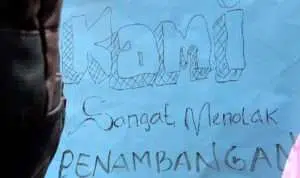 Kami
Sangat Menolak
PENAMBANGAN